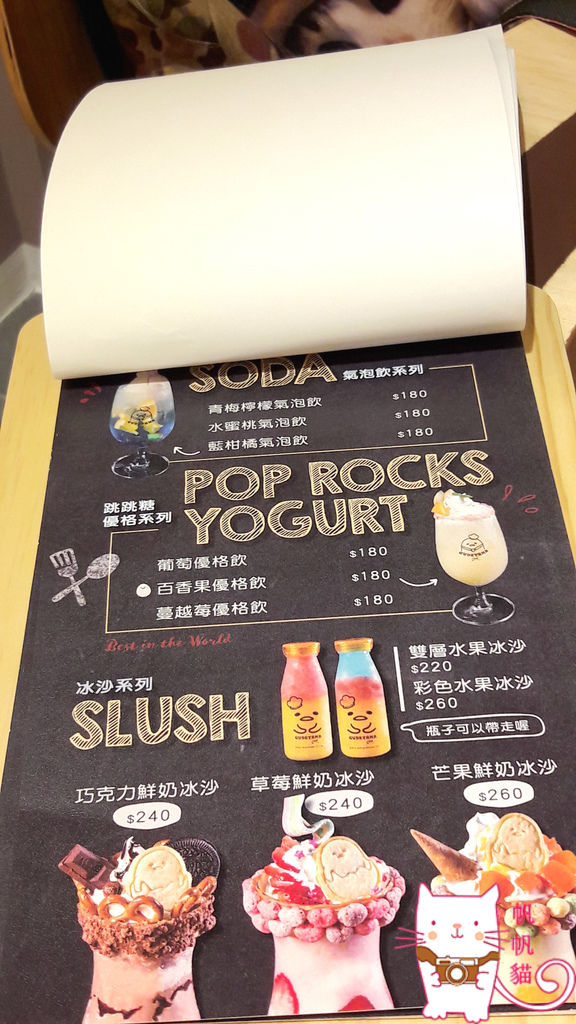 SODA 氣泡飲系列
青梅檸檬氣泡飲 $180
水蜜桃氣泡飲 $180
藍柑橘氣泡飲 $180
跳跳糖
優格系列
POP ROCKS
YOGURT
葡萄優格飲 $180
百香果優格飲 $180
蔓越莓優格飲 $180
GUDETAMA
Best in the World
冰沙系列
SLUSH
GUDETAMA
GUDETAMA
雙層水果冰沙
$220
彩色水果冰沙
$260
瓶子可以帶走喔
巧克力鮮奶冰沙
$240
草莓鮮奶冰沙
$240
芒果鮮奶冰沙
$260
帆帆貓